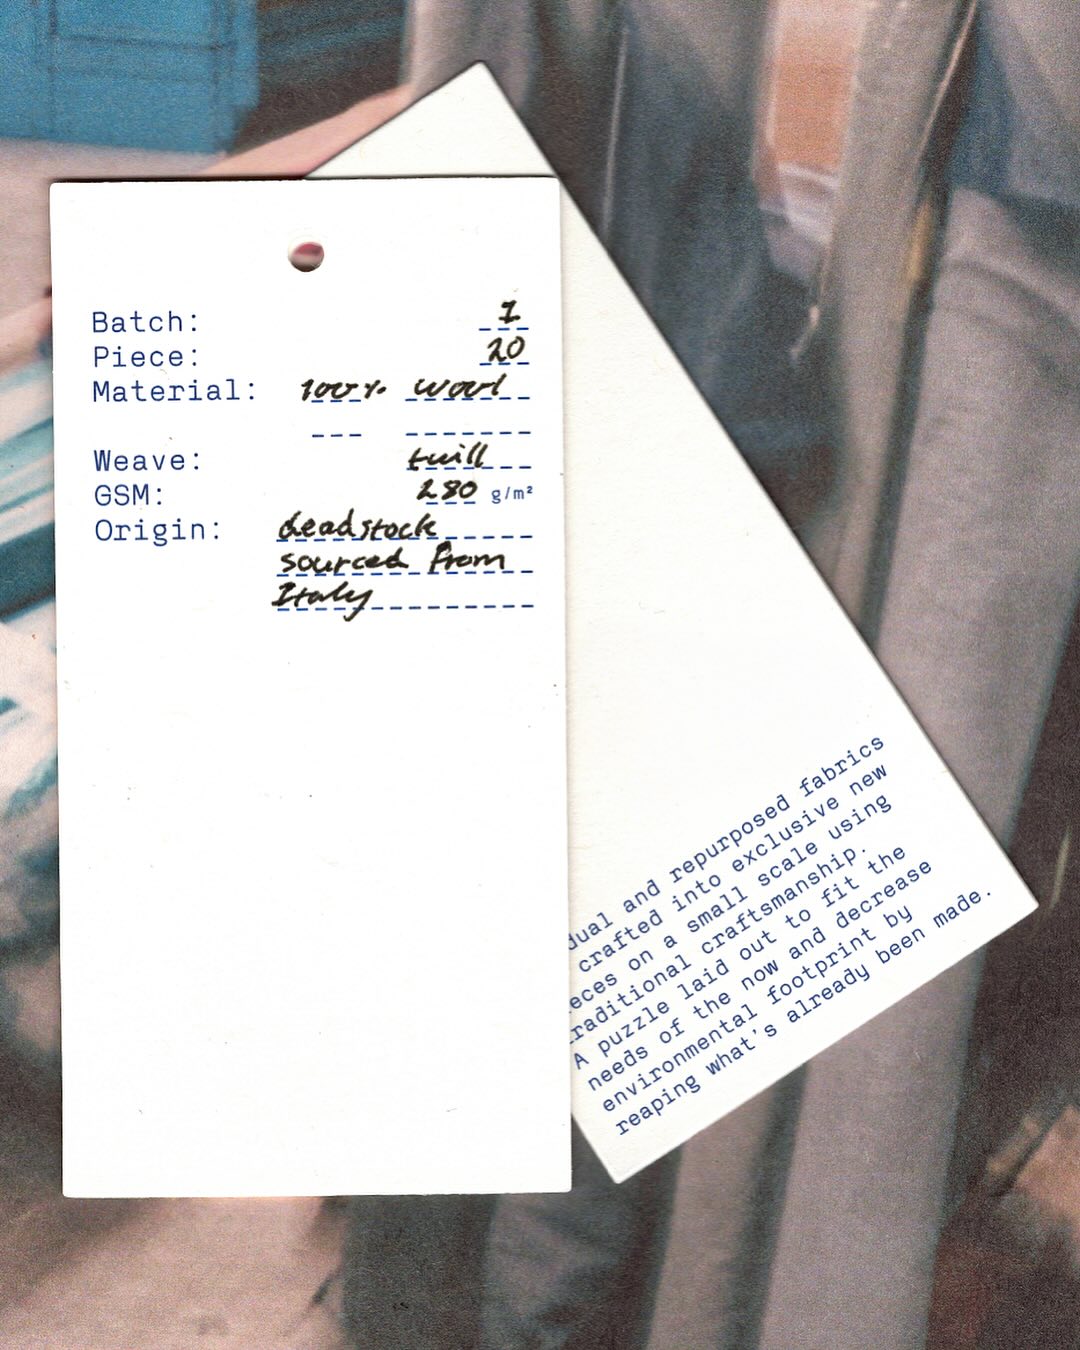 Batch: 1
Piece: 20
Material: 100% wool
Weave: twill
GSM: 280 g/m²
Origin: deadstock
sourced from
Italy
and repurposed fabrics
crafted into exclusive new
on a small scale using
craftsmanship.
A puzzle laid out to fit the
needs of the now and decrease
environmental footprint by
reaping what's already been made.